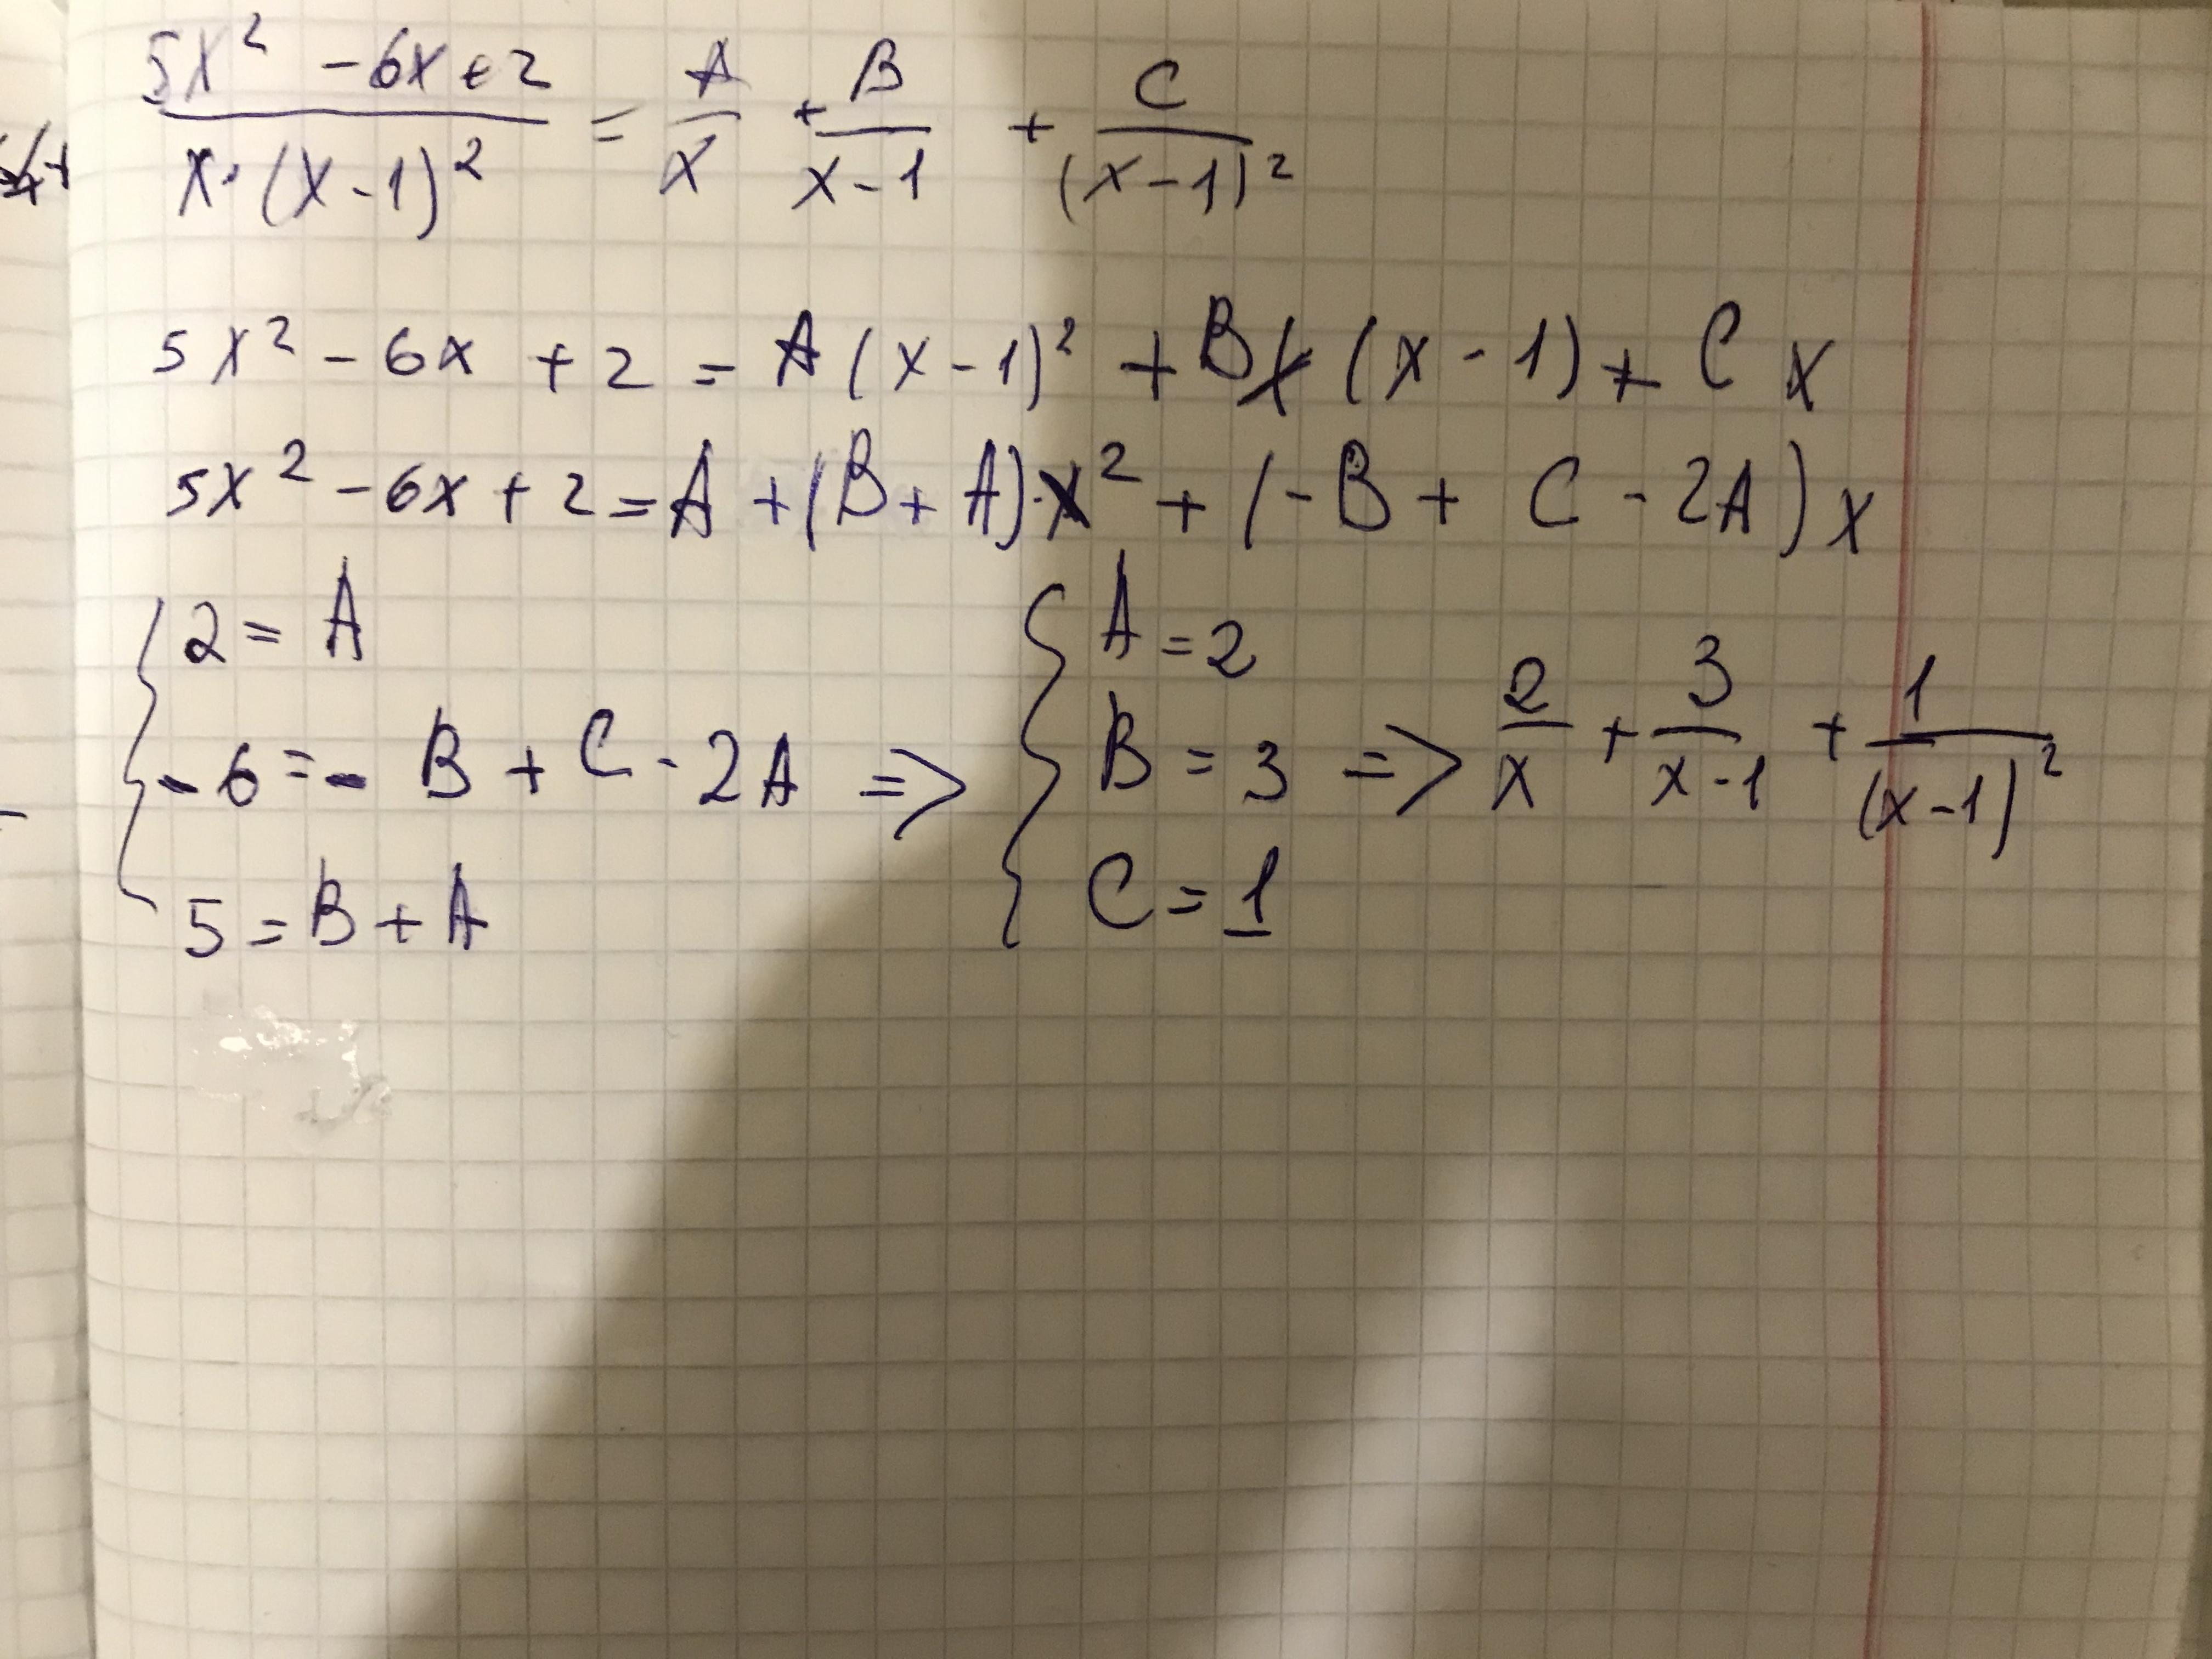 5x² - 6x + 2 / x·(x-1)² = A/x + B/(x-1) + C/(x-1)²
5x² - 6x + 2 = A(x-1)² + Bx(x-1) + Cx
5x² - 6x + 2 = A + (B+A)·x² + (-B + C - 2A)x
{ 2 = A
-6 = -B + C - 2A
5 = B + A
=> { A = 2
B = 3
C = 1
=> 2/x + 3/(x-1) + 1/(x-1)²